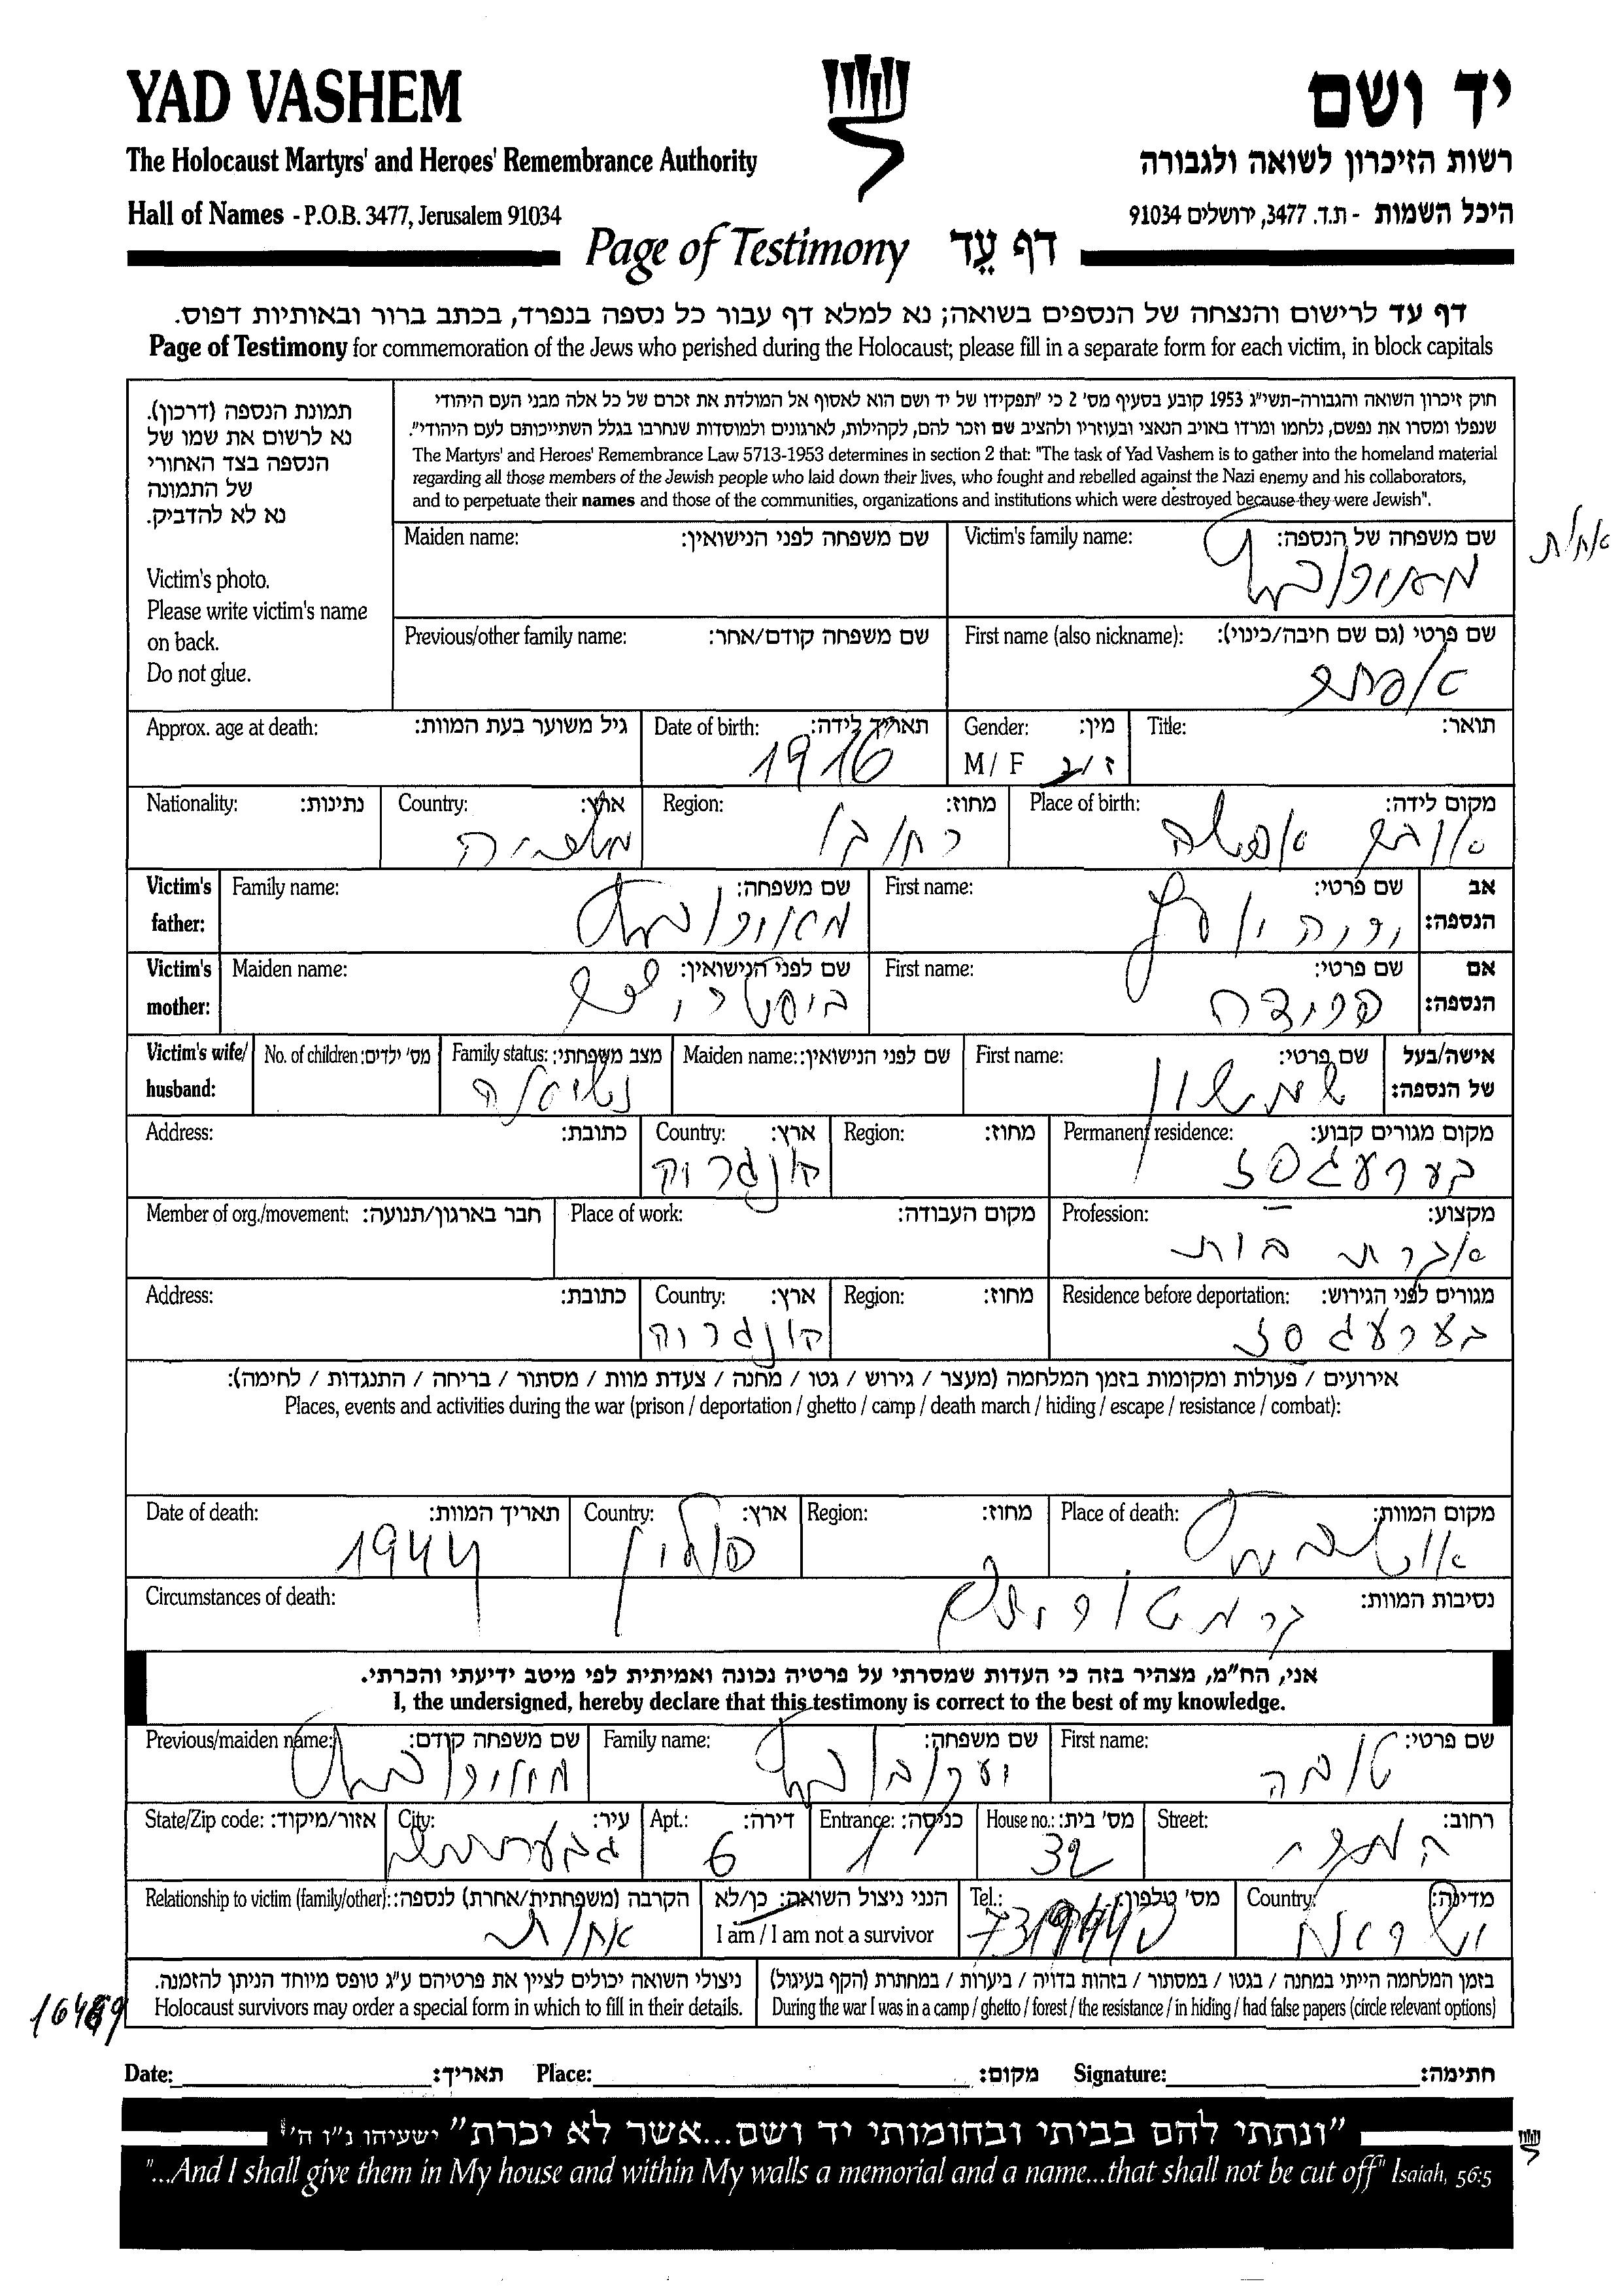 YAD VASHEM
יד ושם
The Holocaust Martyrs' and Heroes' Remembrance Authority
רשות הזיכרון לשואה ולגבורה
Hall of Names - P.O.B. 3477, Jerusalem 91034
היכל השמות - ת.ד. 3477, ירושלים 91034
Page of Testimony דף עֵד
דף עד לרישום והנצחה של הנספים בשואה; נא למלא דף עבור כל נספה בנפרד, בכתב ברור ובאותיות דפוס.
Page of Testimony for commemoration of the Jews who perished during the Holocaust; please fill in a separate form for each victim, in block capitals
תמונת הנספה (דרכון).
נא לרשום את שמו של
הנספה בצד האחורי
של התמונה
נא לא להדביק.
Victim's photo.
Please write victim's name
on back.
Do not glue.
חוק זיכרון השואה והגבורה-תשי"ג 1953 קובע בסעיף מס' 2 כי "תפקידו של יד ושם הוא לאסוף אל המולדת את זכרם של כל אלה מבני העם היהודי
שנפלו ומסרו את נפשם, נלחמו ומרדו באויב הנאצי ובעוזריו ולהציב שם וזכר להם, לקהילות, לארגונים ולמוסדות שנחרבו בגלל השתייכותם לעם היהודי".
The Martyrs' and Heroes' Remembrance Law 5713-1953 determines in section 2 that: "The task of Yad Vashem is to gather into the homeland material
regarding all those members of the Jewish people who laid down their lives, who fought and rebelled against the Nazi enemy and his collaborators,
and to perpetuate their names and those of the communities, organizations and institutions which were destroyed because they were Jewish".
Maiden name: שם משפחה לפני הנישואין:
Victim's family name: שם משפחה של הנספה:
אחות
Previous/other family name: שם משפחה קודם/אחר:
First name (also nickname): שם פרטי (גם שם חיבה/כינוי):
Approx. age at death: גיל משוער בעת המוות:
Date of birth: תאריך לידה:
1916
Gender: מין:
M / F ז / נ
Title: תואר:
Nationality: נתינות:
Country: ארץ:
Region: מחוז:
Place of birth: מקום לידה:
Victim's father: Family name: שם משפחה:
First name: שם פרטי:
אב הנספה:
Victim's mother: Maiden name: שם לפני הנישואין:
First name: שם פרטי:
אם הנספה:
Victim's wife/ husband: No. of children: מס' ילדים:
Family status: מצב משפחתי:
נשואה
Maiden name: שם לפני הנישואין:
First name: שם פרטי:
שמשון
אישה/בעל של הנספה:
Address: כתובת:
Country: ארץ:
Region: מחוז:
Permanent residence: מקום מגורים קבוע:
בערעגסז
Member of org./movement: חבר בארגון/תנועה:
Place of work: מקום העבודה:
Profession: מקצוע:
Address: כתובת:
Country: ארץ:
Region: מחוז:
Residence before deportation: מגורים לפני הגירוש:
בערעגסז
אירועים / פעולות ומקומות בזמן המלחמה (מעצר / גירוש / גטו / מחנה / צעדת מוות / מסתור / בריחה / התנגדות / לחימה):
Places, events and activities during the war (prison / deportation / ghetto / camp / death march / hiding / escape / resistance / combat):
Date of death: תאריך המוות:
1944
Country: ארץ:
פולין
Region: מחוז:
Place of death: מקום המוות:
Circumstances of death: נסיבות המוות:
אני, הח"מ, מצהיר בזה כי העדות שמסרתי על פרטיה נכונה ואמיתית לפי מיטב ידיעתי והכרתי.
I, the undersigned, hereby declare that this testimony is correct to the best of my knowledge.
Previous/maiden name: שם משפחה קודם:
Family name: שם משפחה:
First name: שם פרטי:
טובה
State/Zip code: אזור/מיקוד:
City: עיר:
Apt.: דירה:
6
Entrance: כניסה:
1
House no.: מס' בית:
32
Street: רחוב:
Relationship to victim (family/other): הקרבה (משפחתית/אחרת) לנספה:
אחות
הנני ניצול השואה: כן/לא
I am / I am not a survivor
Tel.: מס' טלפון:
Country: מדינה:
ניצולי השואה יכולים לציין את פרטיהם ע"ג טופס מיוחד הניתן להזמנה.
Holocaust survivors may order a special form in which to fill in their details.
בזמן המלחמה הייתי במחנה / בגטו / במסתור / בזהות בדויה / ביערות / במחתרת (הקף בעיגול)
During the war I was in a camp / ghetto / forest / the resistance / in hiding / had false papers (circle relevant options)
Date: תאריך: Place: מקום: Signature: חתימה:
"ונתתי להם בביתי ובחומותי יד ושם...אשר לא יכרת" ישעיהו נ"ו ה'
"...And I shall give them in My house and within My walls a memorial and a name...that shall not be cut off" Isaiah, 56:5